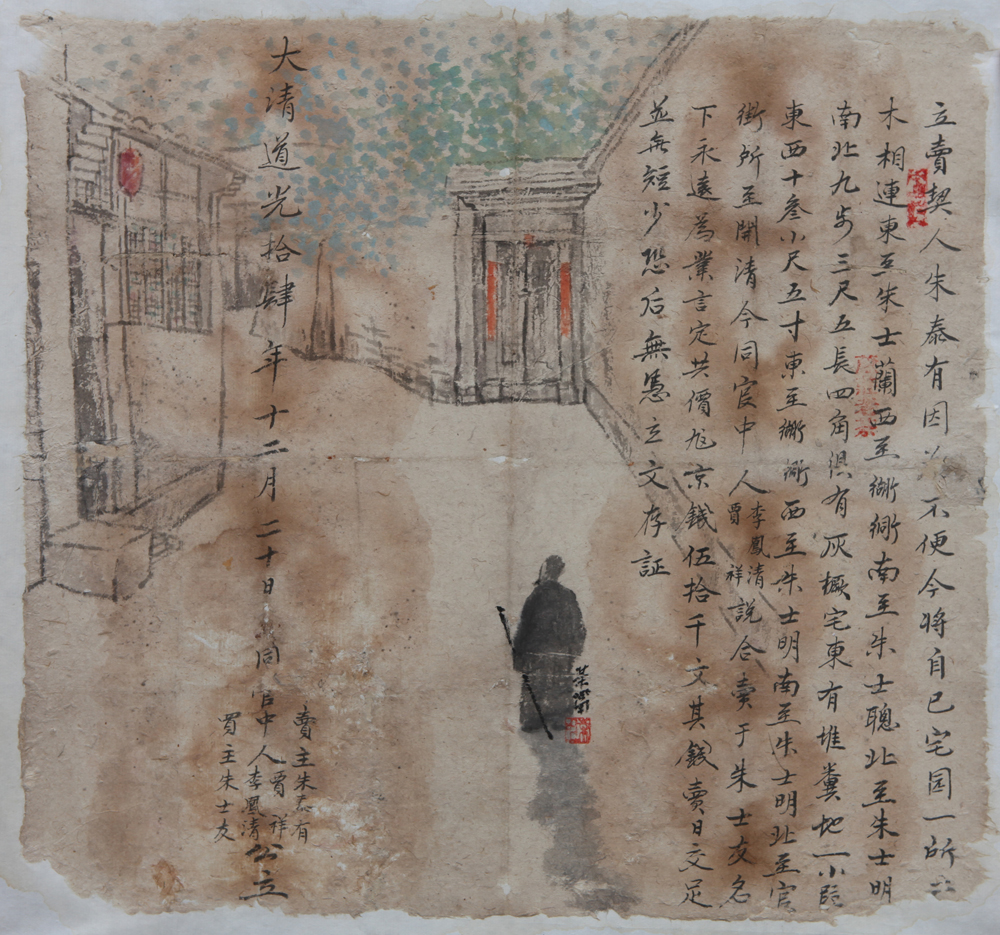 立賣契人朱泰有因以不便今將自已宅园一所
木相連東至朱士蘭西至衚衕南至朱士聰北至朱士明
南北九步三尺五長四角俱有灰橛宅東有堆糞地一小段
東西十叁小尺五寸東至衚衕西至朱士明南至朱士明北至官
街所至開清今同官中人李鳳清賈祥說合賣于朱士友名
下永遠為業言定共價尨京錢伍拾千文其錢賣日交足
並無短少恐后無憑立文存証
大清道光拾肆年十二月二十日 同官中人賈祥李鳳清公立
賣主朱泰有
買主朱士友